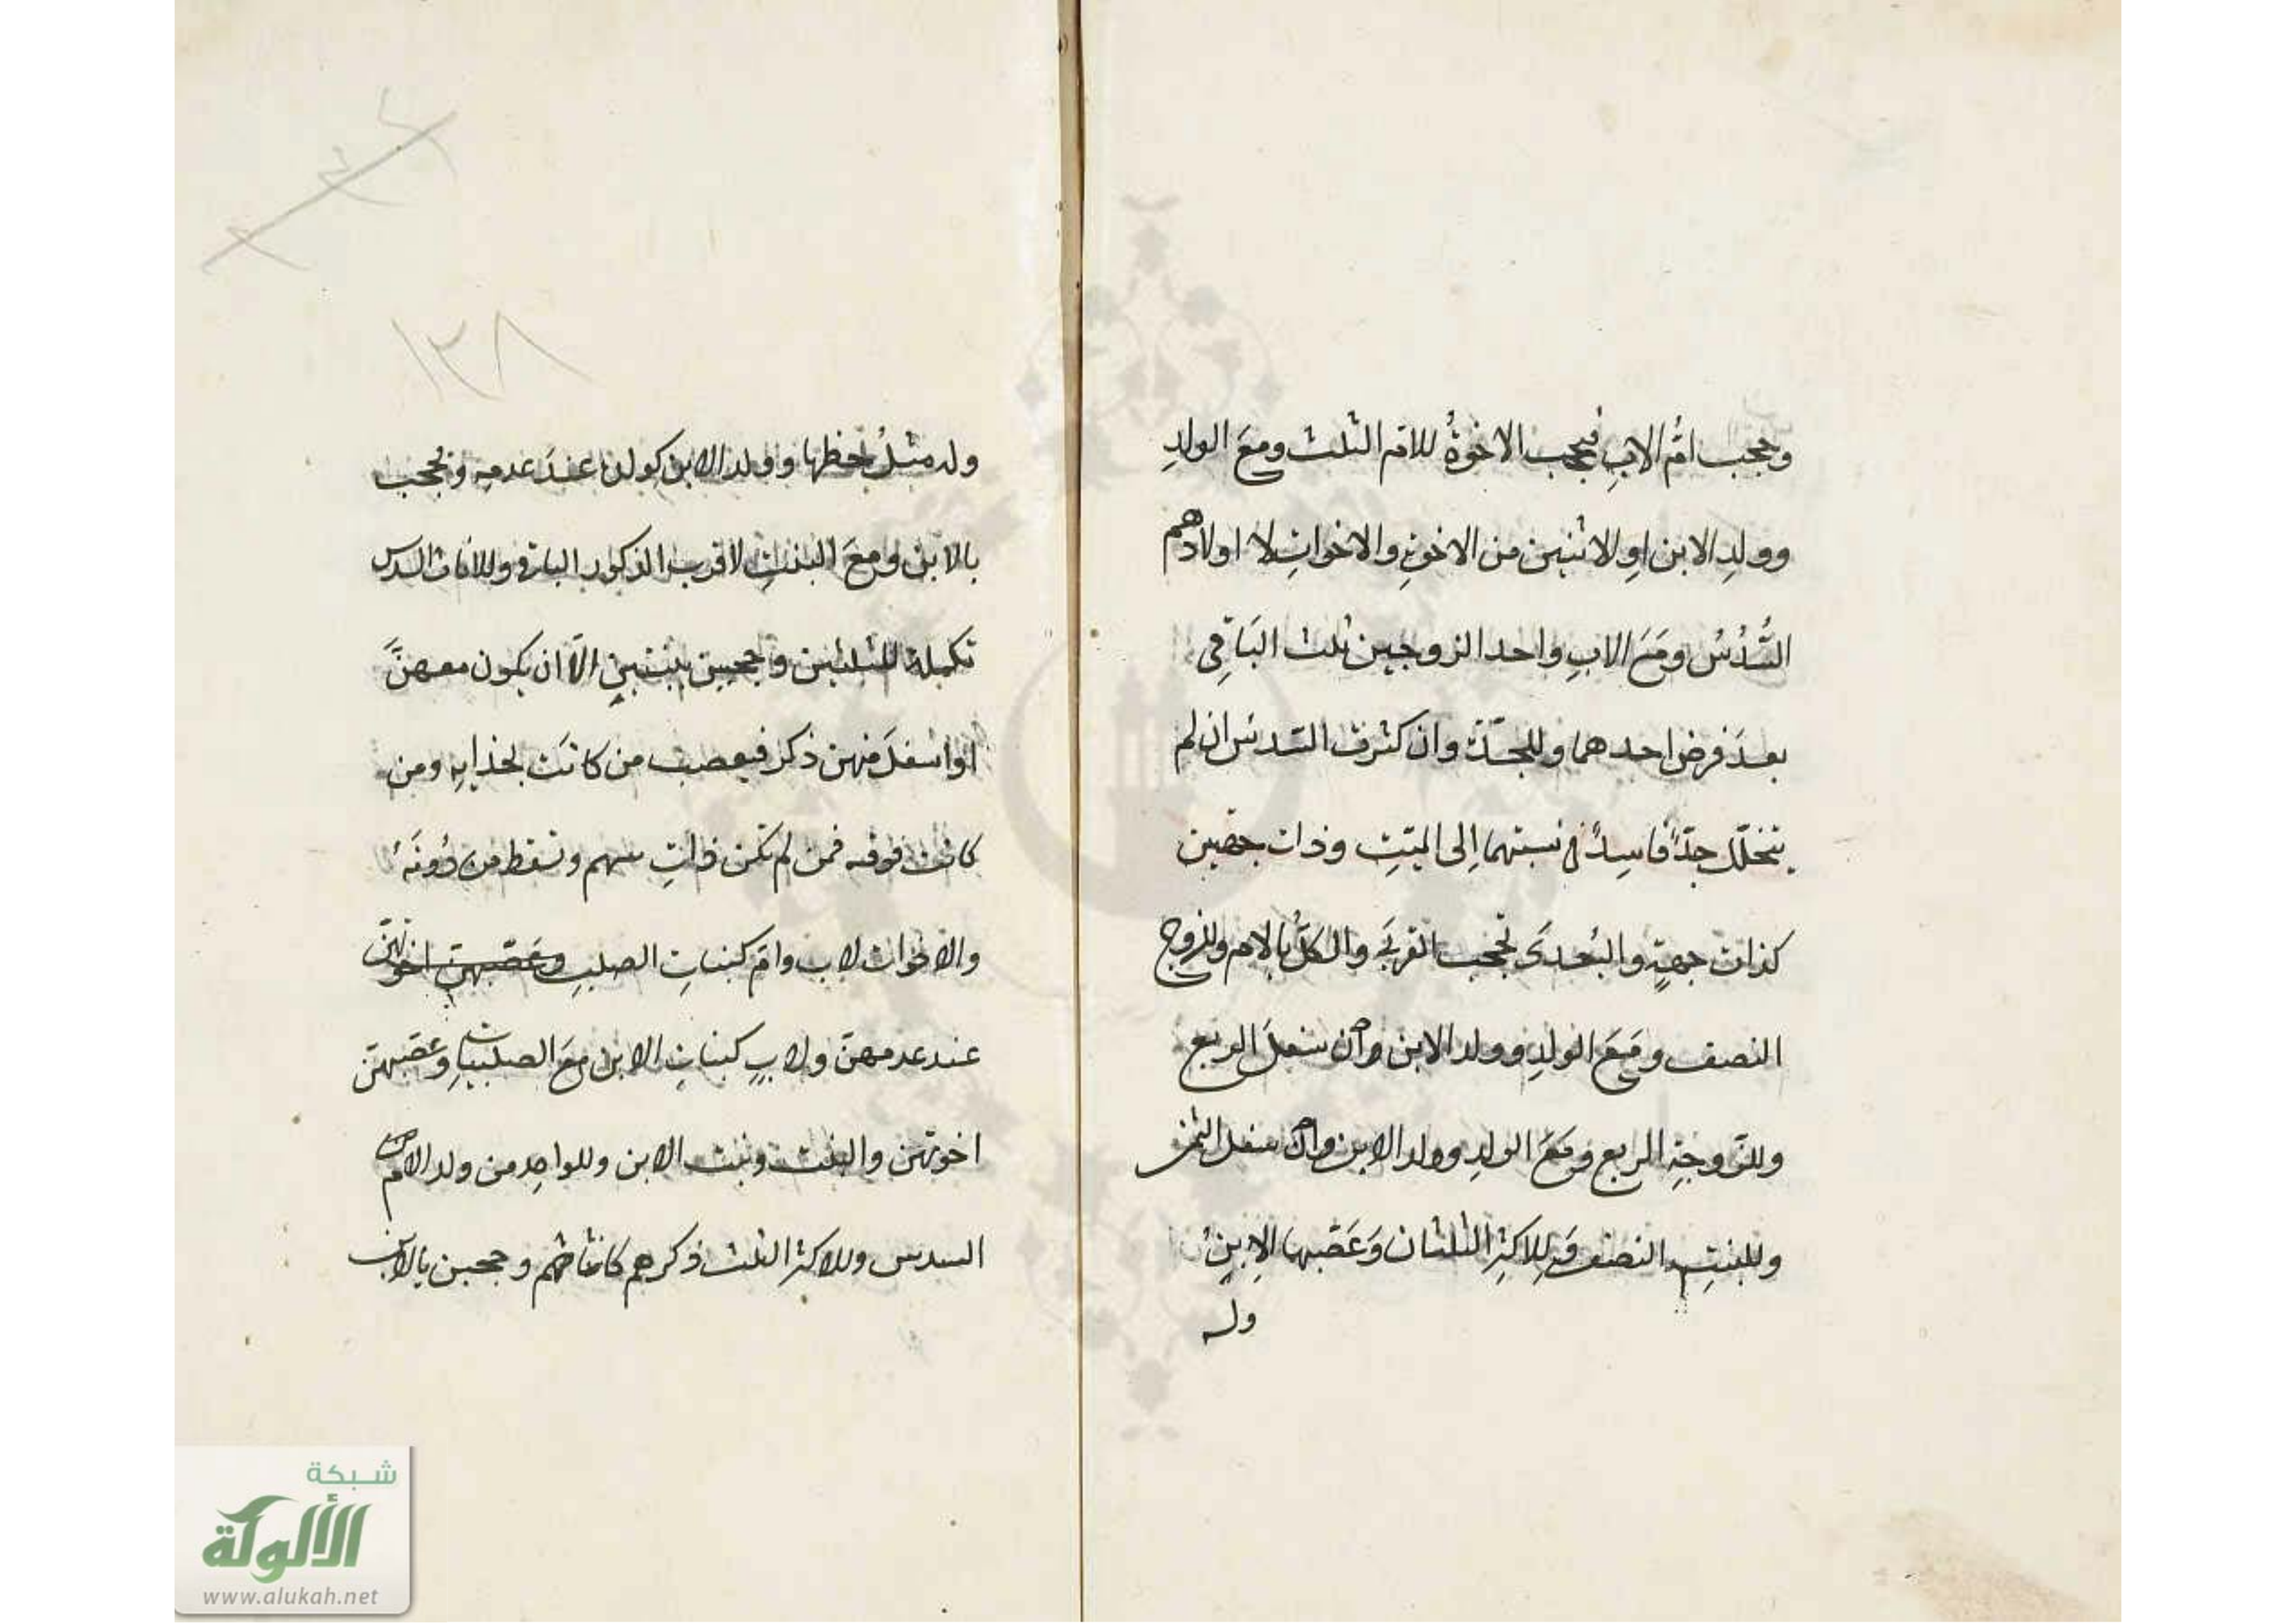 وحجب امُّ الابِ فيحجب الاخوةُ للام الثلث ومعَ الولدِ
وولدِ الابن اوِ الاثنين من الاخوةِ والاخواتِ لا اولادهم
السُّدُسُ ومَعَ الابِ واحد الزوجين ثلث البَاقِى
بعدَ فرض احدهما وللجدّة وان كثرت السّدس ان لم
يتخلّل جدّ فاسِدٌ فى نسبتهما اِلى الميّتِ وذات جهتين
كذات جهةٍ والبُعدَى تحجب القربَى والكلُّ بالام وللزوج
النصف ومَعَ الولدِ وولد الابن وان سفلَ الربع
وللزَّوجةِ الربع ومَعَ الولدِ وولد الابن وان سفل الثمن
وللبنتِ النصف وَلِلاكثِر الثلثان وَعَصَّبها الاِبنُ
وله
وله مثلُ حظها وولد الابن كولده عندَ عدمه ويحجب
بالابن ومعَ البنتِ لاقرب الذكور الباقى وللاناث السدس
تكملة للثلثين وحجبن ببنتينِ الّا ان يكون معهنَّ
او اسفلَ منهن ذكر فيعصب من كانَت بحذايه ومن
كانت فوقه فمن لم تكن ذاتِ سهم وتسقط من دُونَهُ
والاخوات لاب وام كبناتِ الصلبِ وعَصَّبهنّ اخوتهنّ
عند عدمهنّ ولابٍ كبناتِ الابن معَ الصلبياتِ وعصّبهنّ
اخوتهن والبنت وبنت الابن وللواحِد من ولد الام
السدس وللاكثر الثلث ذكرهم كانثاهم وحجبن بالابن
١٢٨
شبكة
الألوكة
www.alukah.net